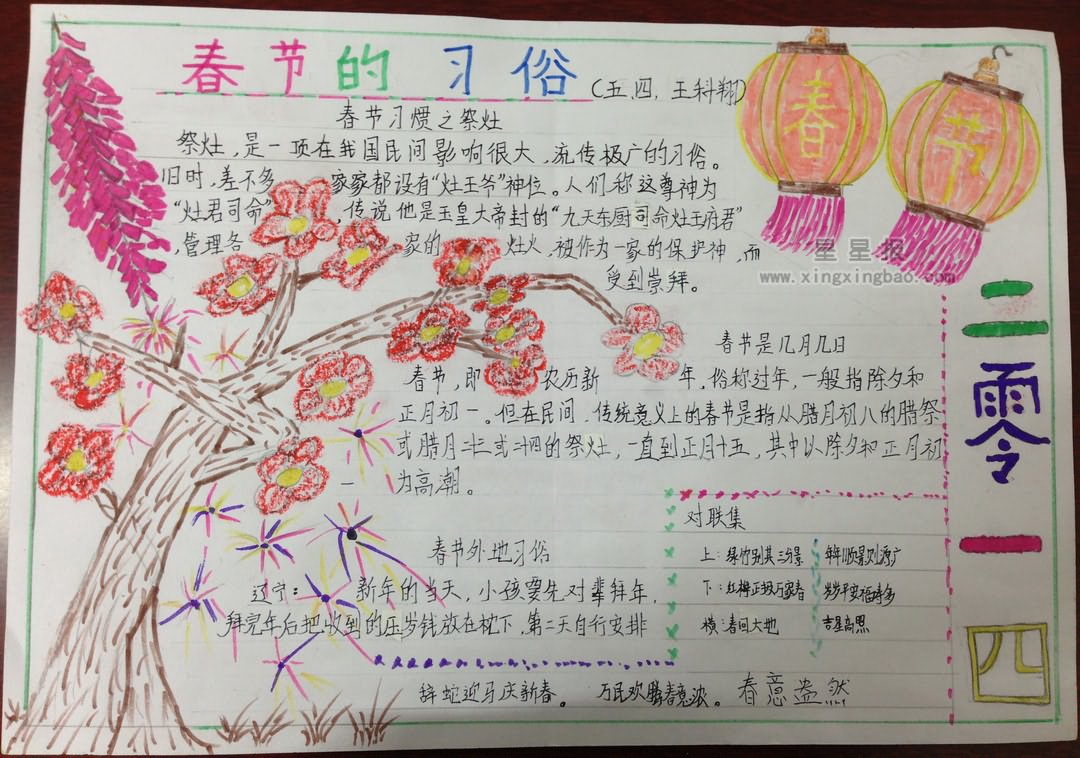 春节的习俗
（五、四，王科翔）
春节习惯之祭灶
祭灶，是一项在我国民间影响很大、流传极广的习俗。
旧时，差不多家家都设有“灶王爷”神位。人们称这尊神为
“灶君司命”，传说他是玉皇大帝封的“九天东厨司命灶王府君”
，管理各家的灶火，被作为一家的保护神，而
受到崇拜。
春节
星星报
www.xingxingbao.com
二零一四
春节是几月几日
春节，即农历新年，俗称过年，一般指除夕和
正月初一。但在民间，传统意义上的春节是指从腊月初八的腊祭
或腊月二十三或二十四的祭灶，一直到正月十五，其中以除夕和正月初
一为高潮。
春节外地习俗
辽宁：新年的当天，小孩要先对辈拜年，
拜完年后把收到的压岁钱放在枕下，第二天自行安排
对联集
上：绿竹别其三分景 年年顺景则源广
下：红梅正报万家春 岁岁平安福寿多
横：春回大地 吉星高照
辞蛇迎马庆新春。 万民欢腾春意浓。 春意盎然